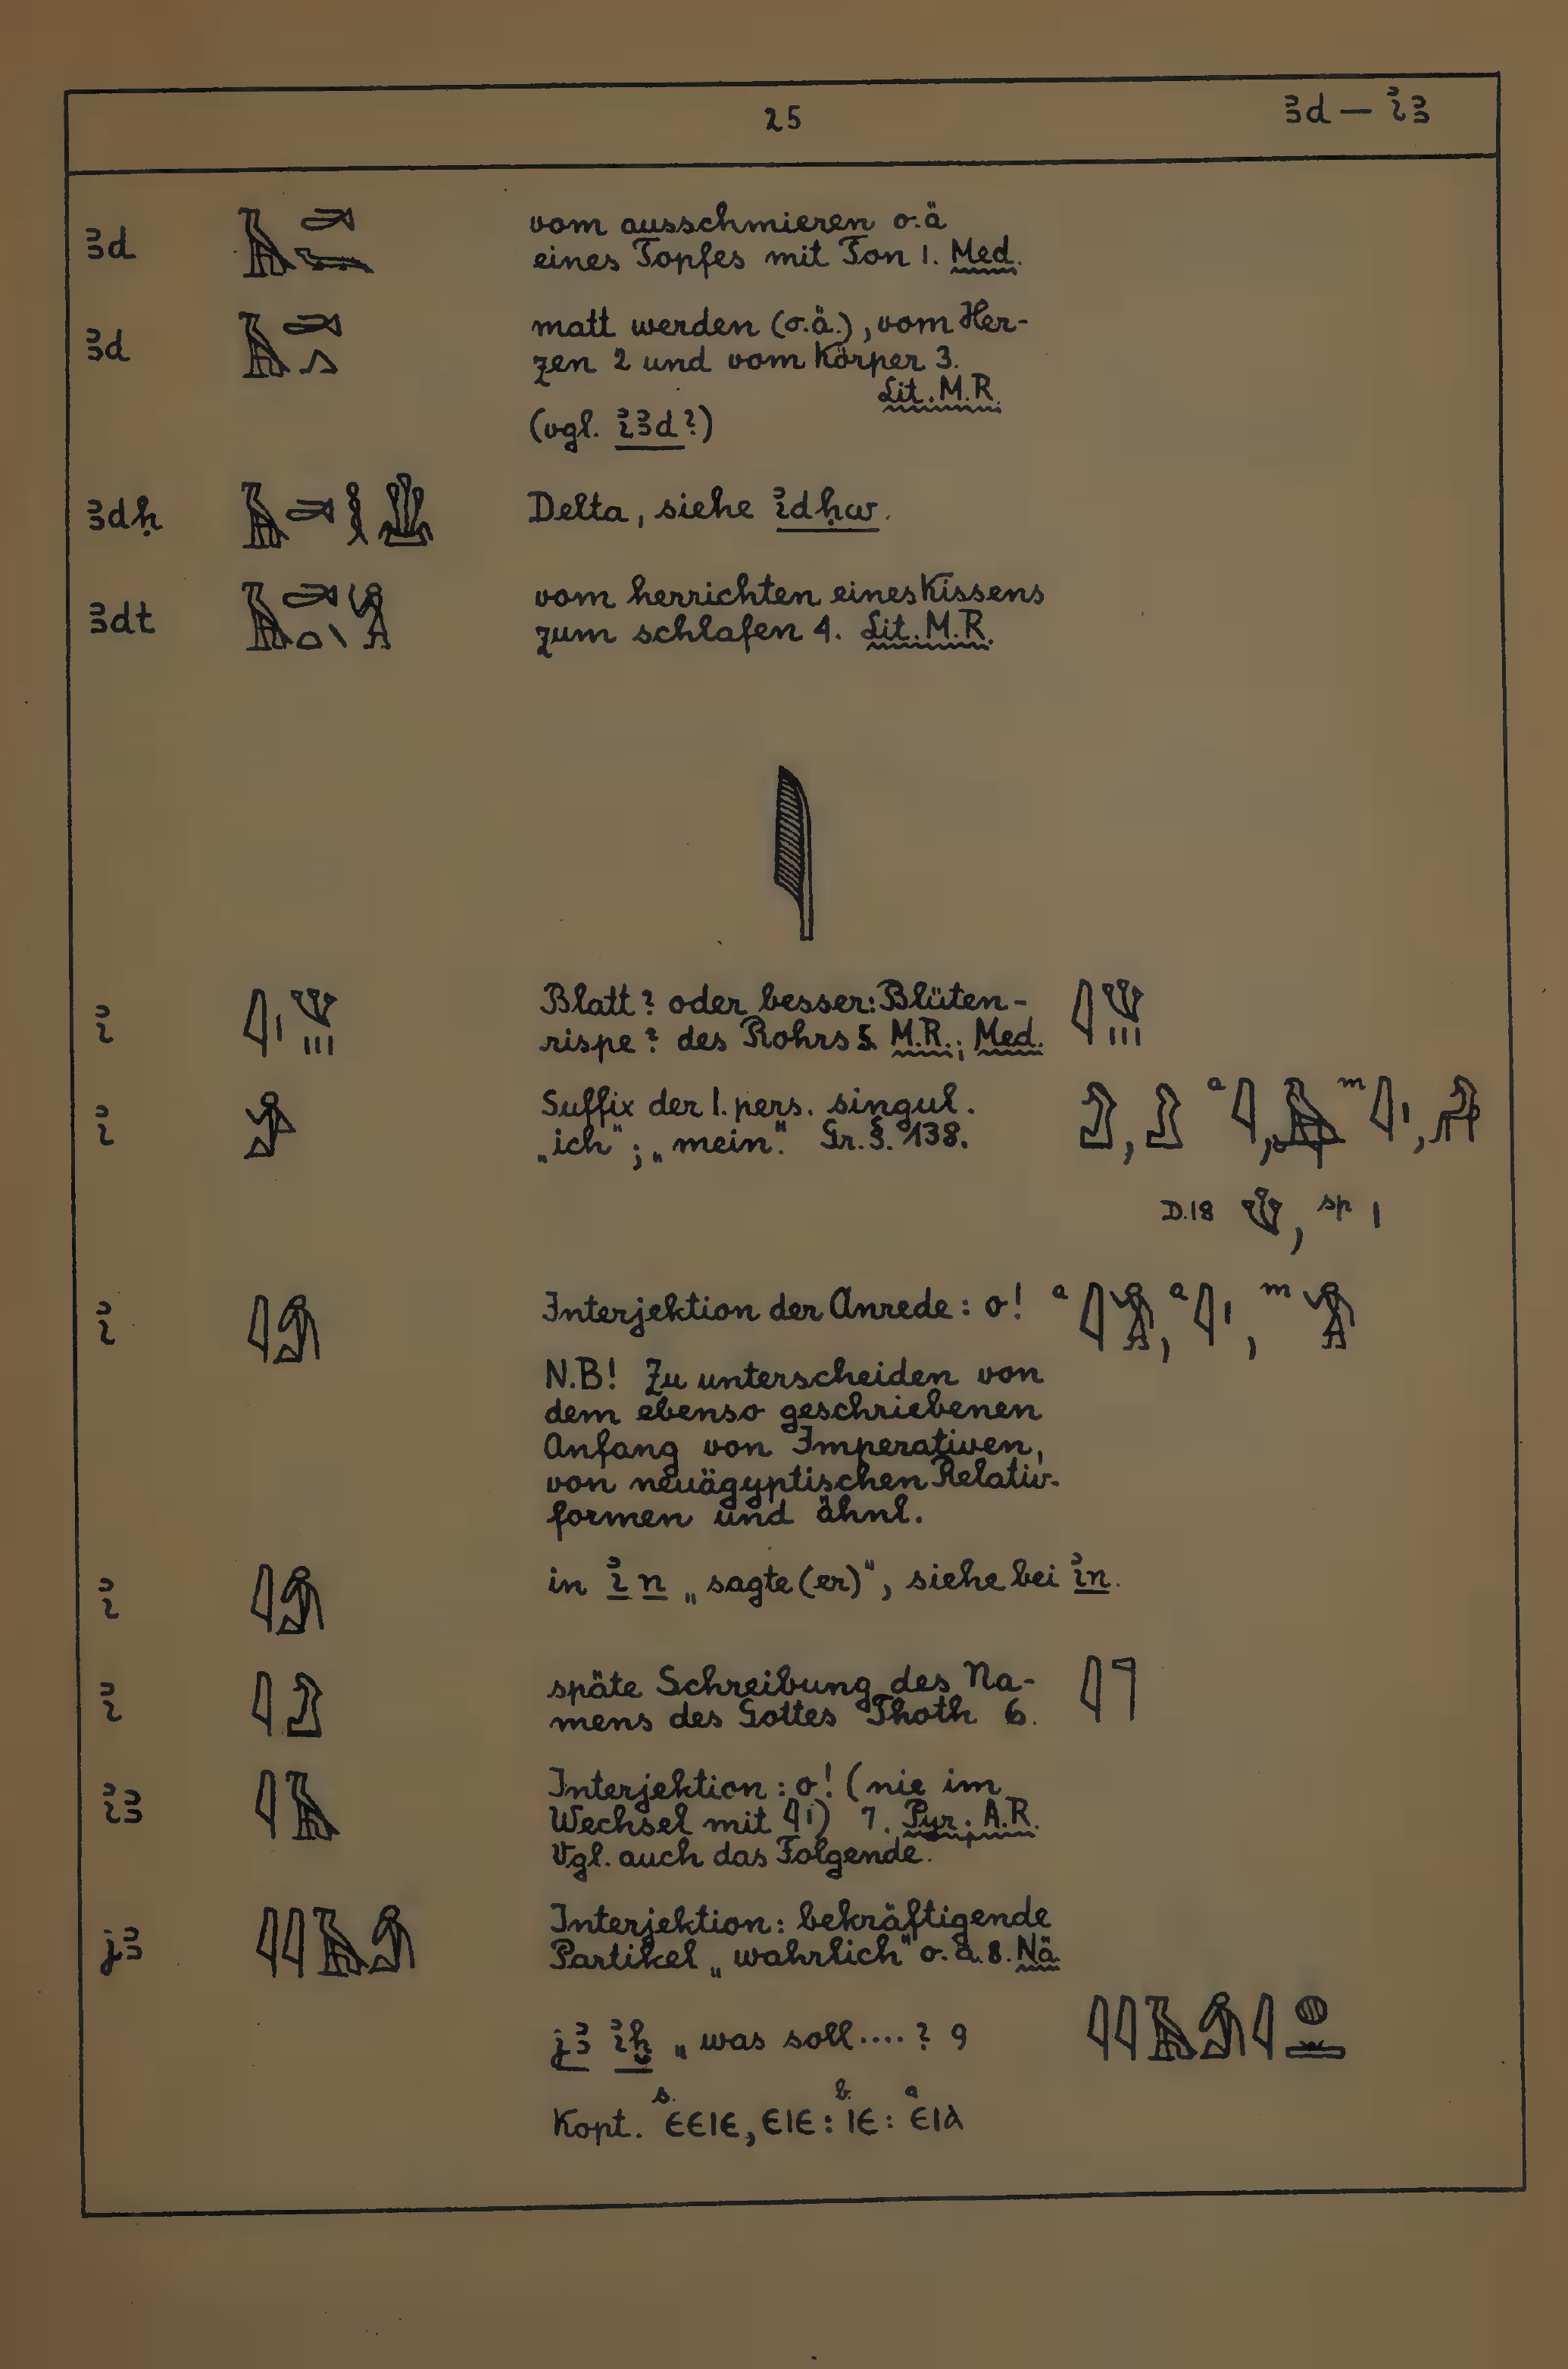 25
ꜣd — iꜣ
ꜣd vom ausschmieren o.ä
eines Topfes mit Ton 1. Med.
ꜣd matt werden (o.ä.), vom Her-
zen 2 und vom Körper 3.
Lit. M.R.
(vgl. iꜣd?)
ꜣdḥ Delta, siehe idḥw.
ꜣdt vom herrichten eines Kissens
zum schlafen 4. Lit. M.R.
i Blatt? oder besser: Blüten-
rispe? des Rohrs 5. M.R.; Med.
i Suffix der 1. pers. singul. a m
„ich“; „mein“. Gr. §. 138.
D.18 , sp
i Interjektion der Anrede: o! a a m
N.B! Zu unterscheiden von
dem ebenso geschriebenen
Anfang von Imperativen,
von neuägyptischen Relativ-
formen und ähnl.
i in i n „sagte (er)“, siehe bei in.
i späte Schreibung des Na-
mens des Gottes Thoth 6.
iꜣ Interjektion: o! (nie im
Wechsel mit 𓇋𓏤) 7. Pyr. A.R.
Vgl. auch das Folgende.
jꜣ Interjektion: bekräftigende
Partikel „wahrlich“ o. ä. 8. Nä
jꜣ iḫ „was soll ....? 9
s. b. a
Kopt. ⲉⲉⲓⲉ, ⲉⲓⲉ: ⲓⲉ: ⲉⲓⲁ